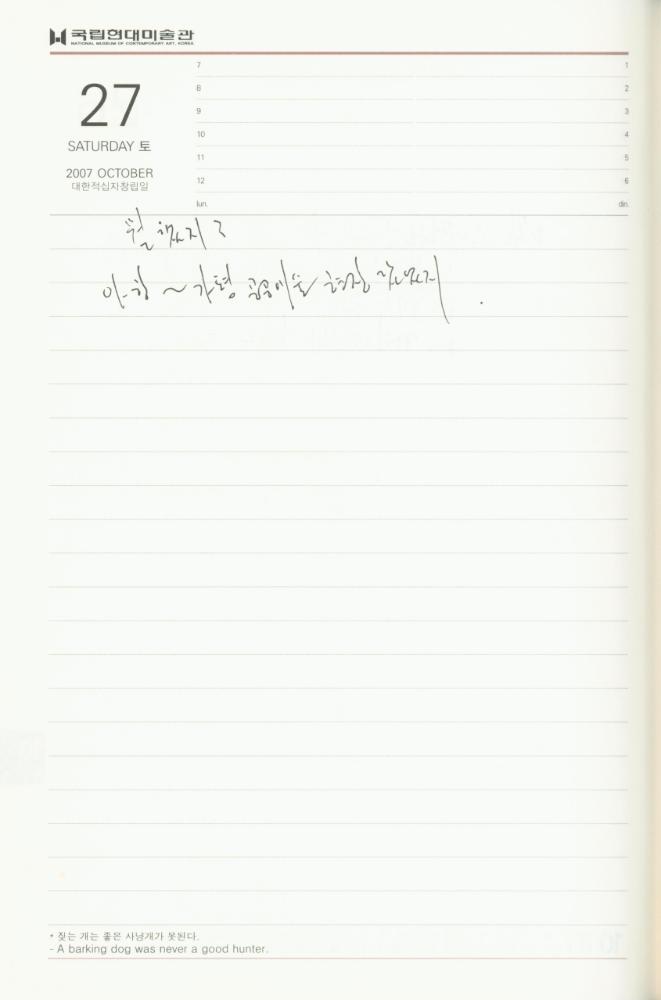 국립현대미술관
NATIONAL MUSEUM OF CONTEMPORARY ART, KOREA
27
SATURDAY 토
2007 OCTOBER
대한적십자창립일
7
8
9
10
11
12
lun.
1
2
3
4
5
6
din.
뭘 했지?
아-하 ~ 가평 공공미술 현장 갔었지.
* 짖는 개는 좋은 사냥개가 못된다.
- A barking dog was never a good hunter.